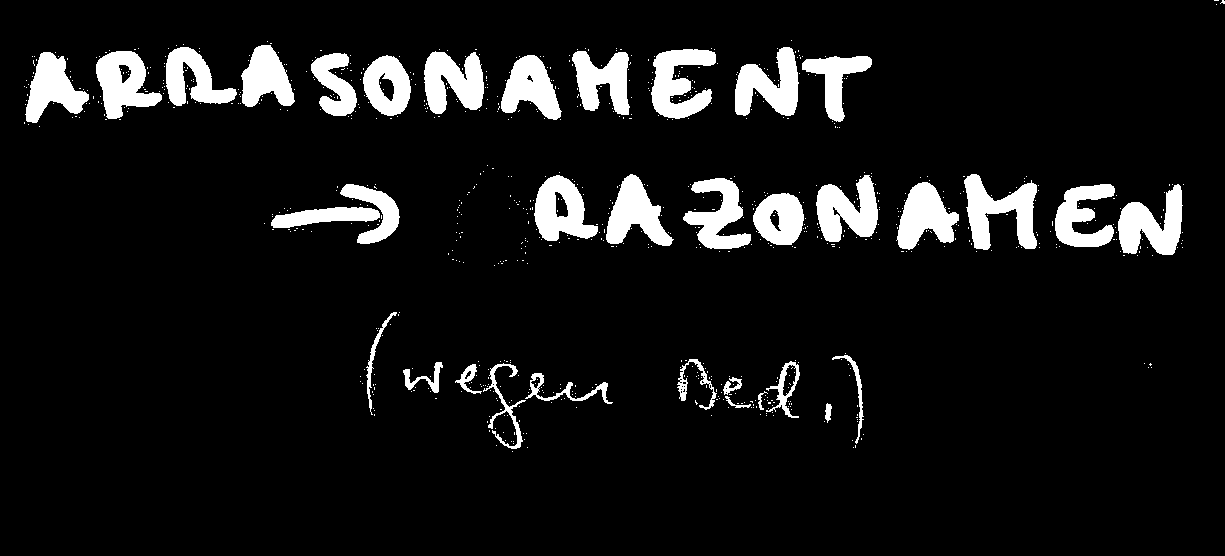 ARRASONAMENT
→ RAZONAMEN
(wegen Bed.)